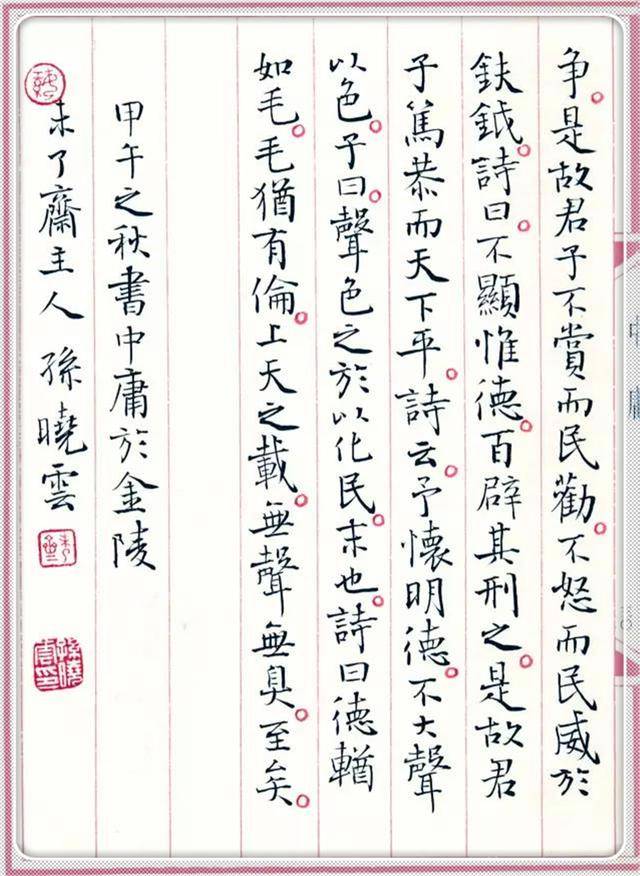 争。是故君子不賞而民勸。不怒而民威於
鈇鉞。詩曰。不顯惟德。百辟其刑之。是故君
子篤恭而天下平。詩云。予懷明德。不大聲
以色。子曰。聲色之於以化民。末也。詩曰德輶
如毛。毛猶有倫。上天之載。無聲無臭。至矣。
甲午之秋書中庸於金陵
未了齋主人 孫曉雲
中庸